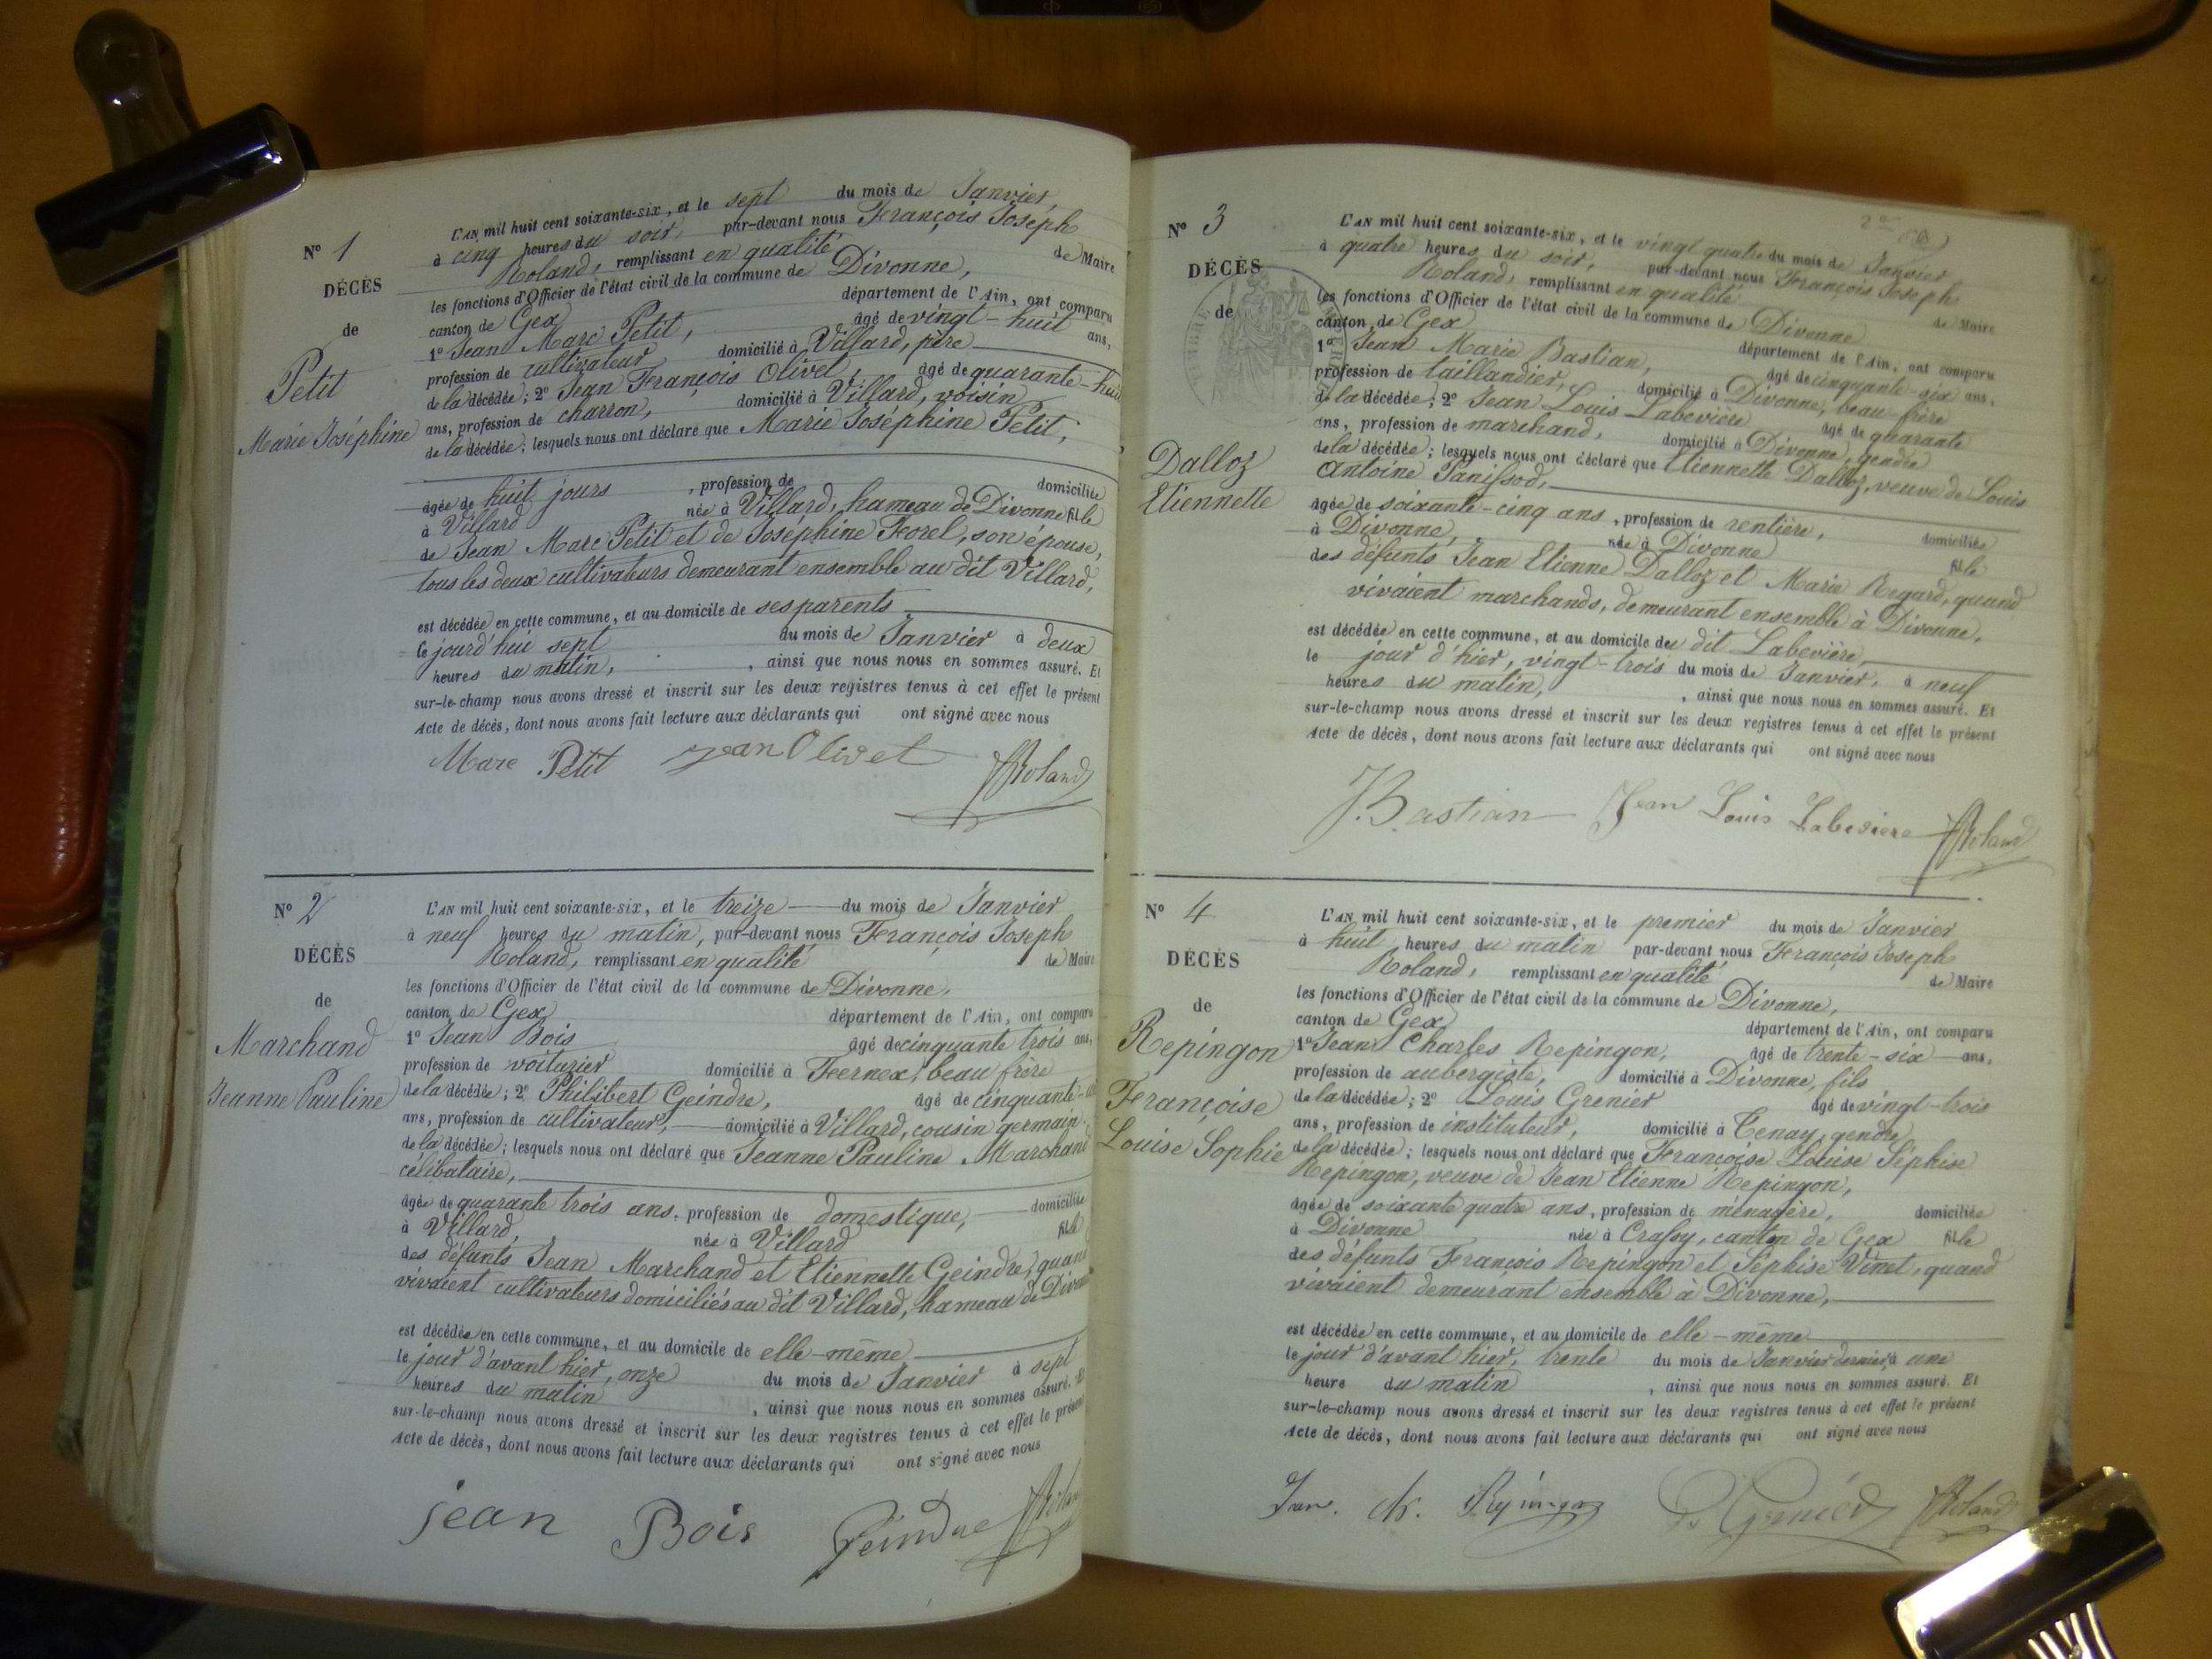 N° 1
DÉCÈS
de
Petit
Marie Joséphine
L'AN mil huit cent soixante-six, et le sept du mois de Janvier,
à cinq heures du soir, par-devant nous François Joseph
Roland, remplissant en qualité de Maire
les fonctions d'Officier de l'état civil de la commune de Divonne,
canton de Gex département de l'Ain, ont comparu
1° Jean Marc Petit, âgé de vingt-huit ans,
profession de cultivateur domicilié à Villard, père
de la décédée; 2° Jean François Olivet, âgé de quarante-huit
ans, profession de charron, domicilié à Villard, voisin
de la décédée; lesquels nous ont déclaré que Marie Joséphine Petit,
âgée de huit jours, profession de domiciliée
à Villard née à Villard, hameau de Divonne fille
de Jean Marc Petit et de Joséphine Forel, son épouse,
tous les deux cultivateurs demeurant ensemble au dit Villard,
est décédée en cette commune, et au domicile de ses parents
le jourd'hui sept du mois de Janvier à deux
heures du matin, , ainsi que nous nous en sommes assuré. Et
sur-le-champ nous avons dressé et inscrit sur les deux registres tenus à cet effet le présent
Acte de décès, dont nous avons fait lecture aux déclarants qui ont signé avec nous
Marc Petit Jean Olivet JRoland
N° 2
DÉCÈS
de
Marchand
Jeanne Pauline
L'AN mil huit cent soixante-six, et le treize du mois de Janvier
à neuf heures du matin, par-devant nous François Joseph
Roland, remplissant en qualité de Maire
les fonctions d'Officier de l'état civil de la commune de Divonne,
canton de Gex département de l'Ain, ont comparu
1° Jean Bois âgé de cinquante trois ans,
profession de voiturier domicilié à Fernex, beau frère
de la décédée; 2° Philibert Geindre, âgé de cinquante
ans, profession de cultivateur, domicilié à Villard, cousin germain
de la décédée; lesquels nous ont déclaré que Jeanne Pauline Marchand
célibataire,
âgée de quarante trois ans, profession de domestique, domiciliée
à Villard, née à Villard fille
des défunts Jean Marchand et Etiennette Geindre, quand
vivaient cultivateurs domiciliés au dit Villard, hameau de Divonne
est décédée en cette commune, et au domicile de elle-même
le jour d'avant hier, onze du mois de Janvier à sept
heures du matin , ainsi que nous nous en sommes assuré. Et
sur-le-champ nous avons dressé et inscrit sur les deux registres tenus à cet effet le présent
Acte de décès, dont nous avons fait lecture aux déclarants qui ont signé avec nous
jean Bois Geindre JRoland
N° 3
DÉCÈS
de
Dalloz
Etiennette
L'AN mil huit cent soixante-six, et le vingt quatre du mois de Janvier
à quatre heures du soir, par-devant nous François Joseph
Roland, remplissant en qualité de Maire
les fonctions d'Officier de l'état civil de la commune de Divonne
canton de Gex département de l'Ain, ont comparu
1° Jean Marie Bastian, âgé de cinquante-six ans,
profession de taillandier, domicilié à Divonne, beau-frère
de la décédée; 2° Jean Louis Labevière âgé de quarante
ans, profession de marchand, domicilié à Divonne, gendre
de la décédée; lesquels nous ont déclaré que Etiennette Dalloz, veuve de Louis
Antoine Panissod,
âgée de soixante-cinq ans, profession de rentière, domiciliée
à Divonne, née à Divonne fille
des défunts Jean Etienne Dalloz et Marie Regard, quand
vivaient marchands, demeurant ensemble à Divonne,
est décédée en cette commune, et au domicile du dit Labevière,
le jour d'hier, vingt-trois du mois de Janvier, à neuf
heures du matin, , ainsi que nous nous en sommes assuré. Et
sur-le-champ nous avons dressé et inscrit sur les deux registres tenus à cet effet le présent
Acte de décès, dont nous avons fait lecture aux déclarants qui ont signé avec nous
J. Bastian Jean Louis Labeviere JRoland
N° 4
DÉCÈS
de
Repingon
Françoise
Louise Sophie
L'AN mil huit cent soixante-six, et le premier du mois de Janvier
à huit heures du matin par-devant nous François Joseph
Roland, remplissant en qualité de Maire
les fonctions d'Officier de l'état civil de la commune de Divonne,
canton de Gex département de l'Ain, ont comparu
1° Jean Charles Repingon, âgé de trente-six ans,
profession de aubergiste, domicilié à Divonne, fils
de la décédée; 2° Louis Grenier âgé de vingt-trois
ans, profession de instituteur, domicilié à Tenay, gendre
de la décédée; lesquels nous ont déclaré que Françoise Louise Séphise
Repingon, veuve de Jean Etienne Repingon,
âgée de soixante quatre ans, profession de ménagère, domiciliée
à Divonne née à Crassy, canton de Gex fille
des défunts François Repingon et Séphise Vinet, quand
vivaient demeurant ensemble à Divonne,
est décédée en cette commune, et au domicile de elle-même
le jour d'avant hier, trente du mois de Janvier dernier, à une
heure du matin , ainsi que nous nous en sommes assuré. Et
sur-le-champ nous avons dressé et inscrit sur les deux registres tenus à cet effet le présent
Acte de décès, dont nous avons fait lecture aux déclarants qui ont signé avec nous
Jean. Ch. Repingon L. Grenier JRoland